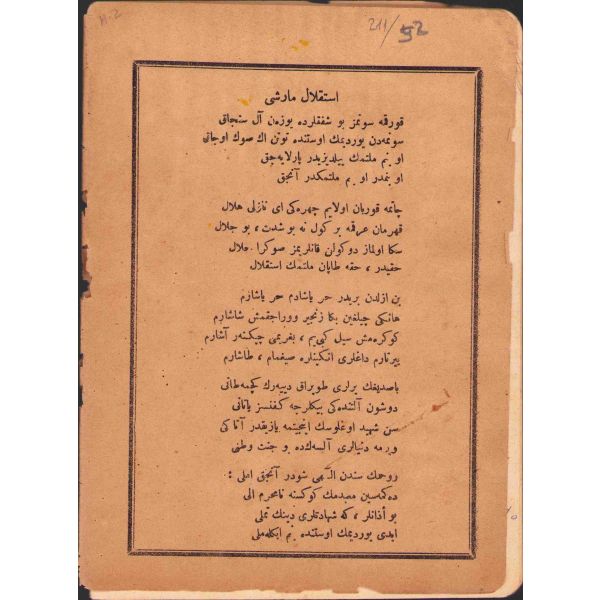 ۸-2
211/52
استقلال مارشی
قورقمه سونمز بو شفقلرده یوزهن آل سنجاق
سونمه‌دن یوردیمك اوستنده توتن اك صوك اوجاق
او بنم ملتمك ییلدیزیدر پارلایه‌جق
او بنمدر او بنم ملتمكدر آنجق
چاتمه قوربان اولایم چهره‌كی ای نازلی هلال
قهرمان عرقمه بر كول نه بو شدت، بو جلال
سكا اولماز دوكولن قانلریمز صوكرا حلال
حقیدر، حقه طاپان ملتمك استقلال
بن ازلدن بریدر حر یاشادم حر یاشارم
هانكی چیلغین بكا زنجیر ووراجقمش شاشارم
كوكره‌مش سیل كبی‌یم، بندیمی چیكنه‌ر آشارم
ییرتارم داغلری انكینلره صیغمام، طاشارم
باصدیغك یرلری طوپراق دییه‌رك كچمه طانی
دوشون آلتنده‌كی بیكلرجه كفنسز یاتانی
سن شهید اوغلوسك اینجیتمه یازیقدر آتاكی
ویرمه دنیالری آلسه‌كده بو جنت وطنی
روحمك سندن الهی شودر آنجق املی:
دكمه‌سین معبدمك كوكسنه نامحرم الی
بو أذانلر، كه شهادتلری دینك تملی
ابدی یوردیمك اوستنده بنم ایكله‌ملی